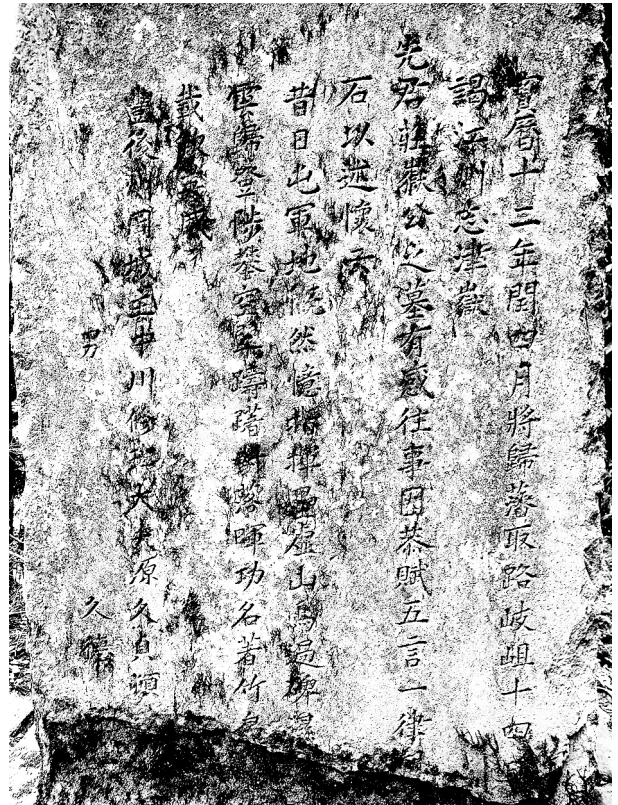 寶曆十三年閏四月將歸藩取路岐岨十四日
謁江州志津嶽
先君莊嶽公之墓有感往事因恭賦五言一律
石以述懷云
昔日屯軍地慨然憶指揮壘虛山鳥過碑
雲歸登陟攀空翠躊躇對落暉功名著竹帛
載
豊後州岡城主中川修理大夫源久貞頓
男 久